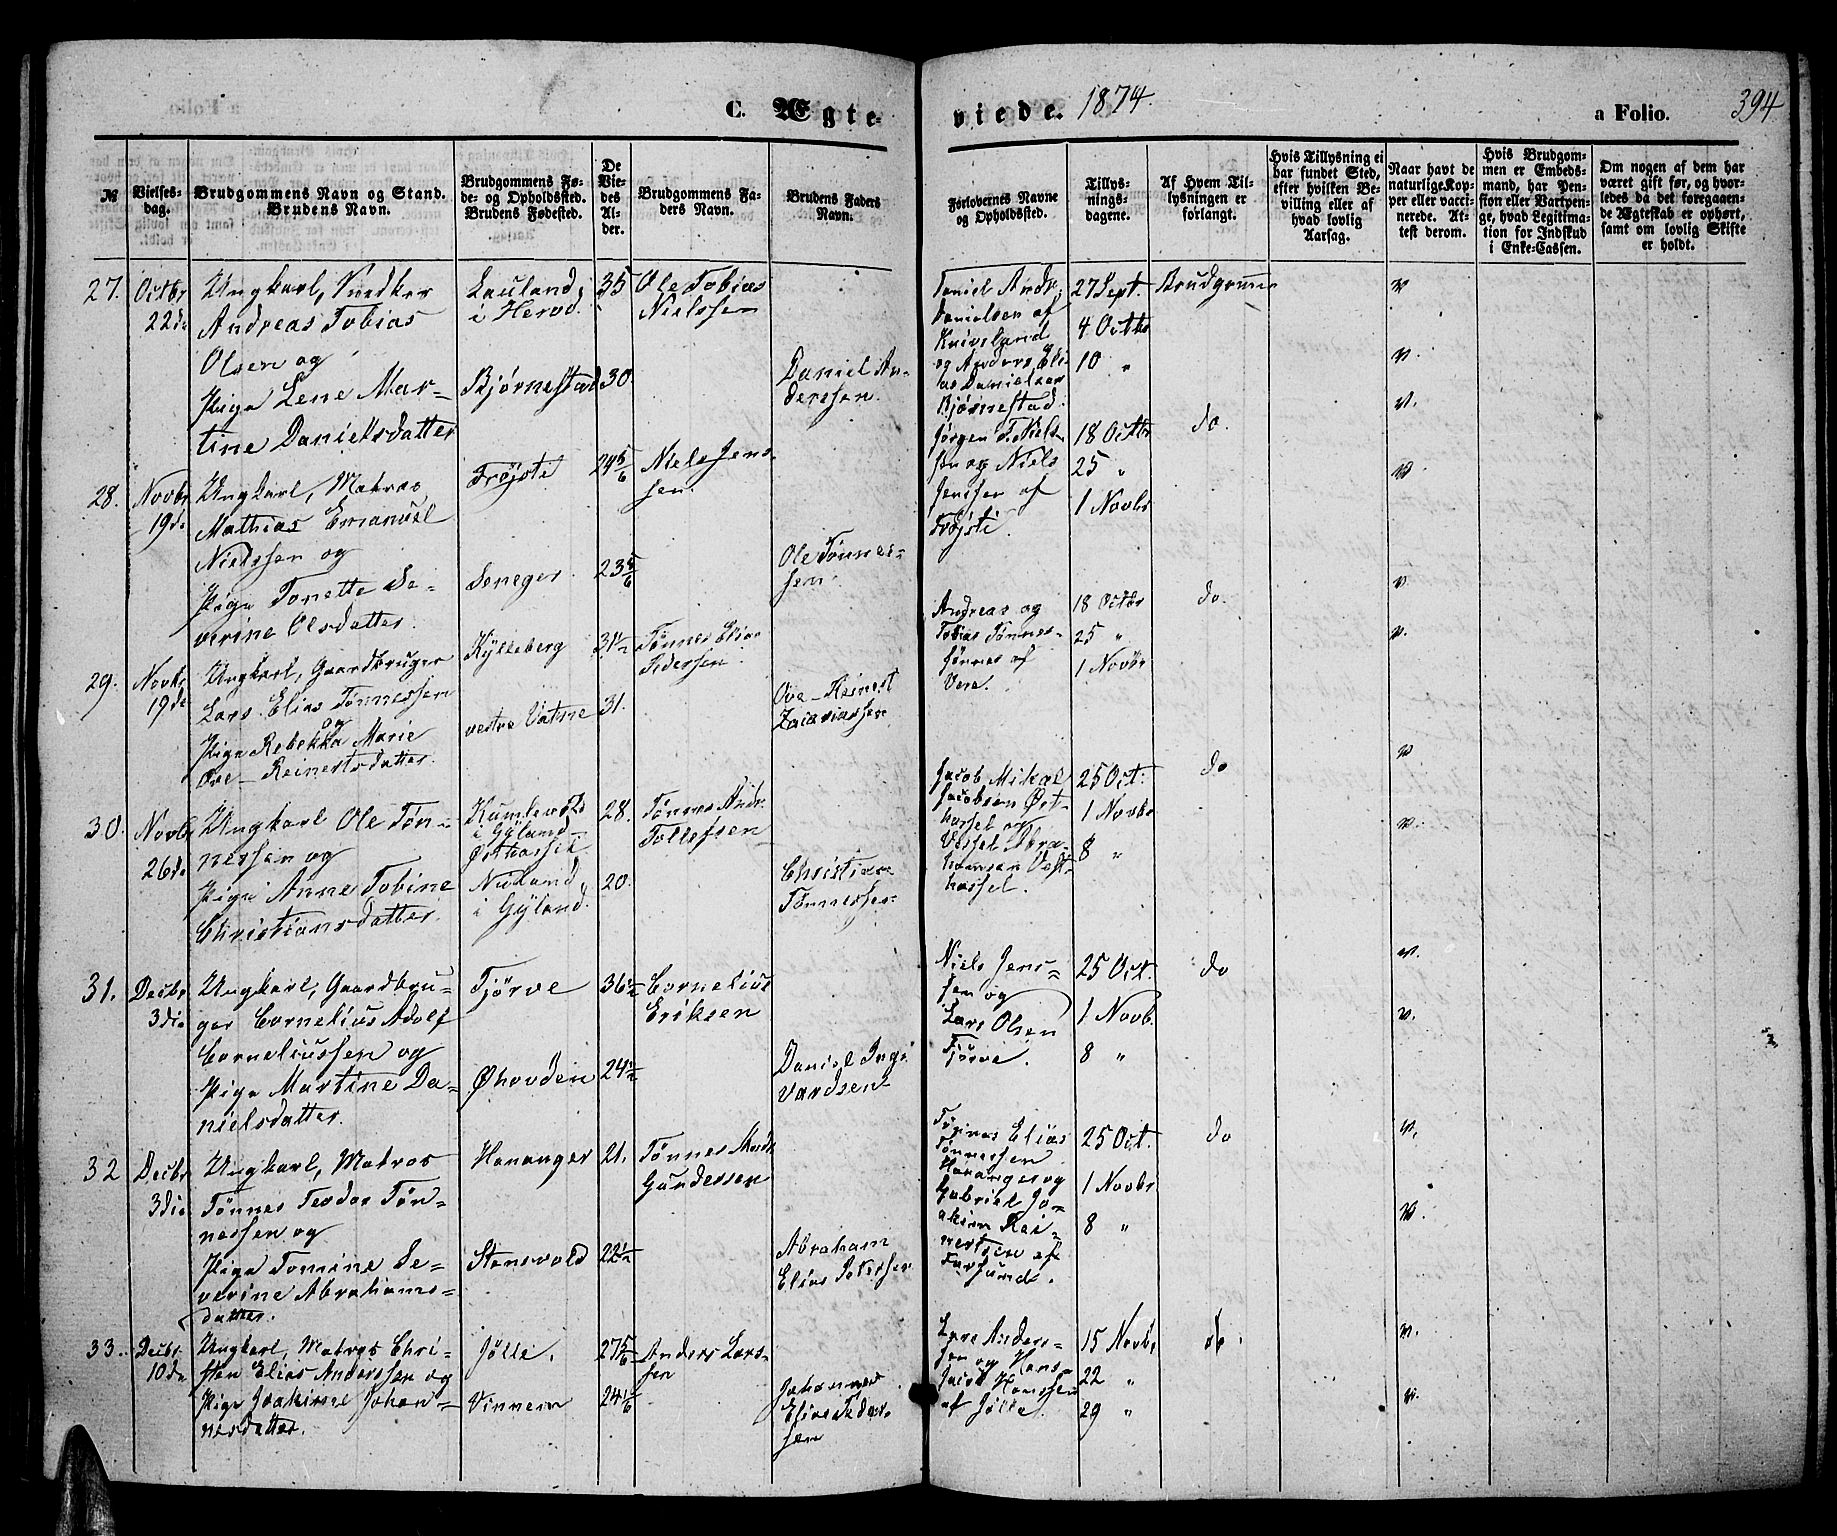 C. Ægte-
viede. 1874.
a Folio. 394
№
Vielses-
dag.
Brudgommens Navn og Stand.
Brudens Navn.
Brudgommens Fø-
de- og Opholdssted.
Brudens Fødested.
De
Vie-
des
Al-
der.
Brudgommens Fa-
ders Navn.
Brudens Faders
Navn.
Forlovernes Navne
og Opholdssted.
Tillys-
nings-
dagene.
Af Hvem Til-
lysningen er
forlangt.
Hvis Tillysning ei
har fundet Sted,
efter hvilken Be-
villing eller af
hvad lovlig
Aarsag.
Naar havt de
naturlige Kop-
per eller vacci-
nerede. At-
test derom.
Hvis Brudgom-
men er Embeds-
mand, har Pen-
sion eller Vartpen-
ge, hvad Legitima-
tion for Indskud
i Enke-Cassen.
Om nogen af dem har
været gift før, og hvor-
ledes da det foregaaen-
de Ægteskab er ophørt,
samt om lovlig Skifte
er holdt.
27.
Octbr
22de
Ungkarl, Snedker
Andreas Tobias
Olsen og
Pige Lene Mar-
tine Danielsdatter
Lauland
i Herod.
Bjørnestad
35
30.
Ole Tobias
Nielssen
Daniel An-
derssen.
Daniel Andr.
Danielsen af
Kvivsland
og Anders Eli-
as Danielsen
Bjørnestad.
27 Sept.
4 Octbr
10 "
Brudgommen
v
v.
28.
Novbr
19de
Ungkarl, Matros
Mathias Emanuel
Nielssen og
Pige Tonette Se-
verine Olsdatter.
Trøjsti
Seneger.
24 5/6
23 5/6
Niels Jens-
sen.
Ole Tønnes-
sen.
Jørgen T. Niels-
sen og Niels
Jenssen af
Trøjsti.
18 Octbr
25 "
1 Novbr
do.
v.
v
29.
Novbr
19de
Ungkarl, Gaardbruger
Lars Elias Tønnessen
og
Pige Rebekka Marie
Ove-Reinertsdatter.
Kylleberg
vestre Vatne
31 1/2
31.
Tønnes Elias
Pederssen.
Ove-Reinert
Zacariassen
Andreas og
Tobias Tønnes-
sønnes af
Vere.
18 Octbr
25 "
1 Novbr
do.
v.
v.
30.
Novbr
26de
Ungkarl Ole Tøn-
nessen og
Pige Anne Tobine
Christiansdatter.
i Gyland
Østhassel.
Nuland
i Gyland.
28.
20.
Tønnes Andr.
Tollefsen
Christian
Tønnessen
Jacob Mikal
Jacobsen Øst-
hassel og
Abra-
hamsen Vest-
hassel.
25 Oct.
1 Novbr
8 "
do
v
v.
31.
Decbr
3die
Ungkarl, Gaardbru-
ger Cornelius Adolf
Corneliussen og
Pige Martine Da-
nielsdatter.
Tjørve
Øhovden
36 1/2
24 1/2
Cornelius
Eriksen
Daniel Ing-
vardsen
Niels Jens-
sen og
Lars Olsen
Tjørve.
25 Oct.
1 Novb.
8 "
do
v.
v.
32
Decbr
3die
Ungkarl, Matros
Tønnes Teodor Tøn-
nessen og
Pige Tomine Se-
verine Abrahams-
datter.
Hananger
Stensvold
21.
22 1/2
Tønnes Mart.
Gundersen
Abraham
Elias Pederssen
Tønnes Elias
Tønnessen
Hananger og
Gabriel Jo-
akim Rei-
nertsen af
Farsund.
25 Oct.
1 Novbr
8 "
do
v.
v.
33.
Decbr.
10de
Ungkarl, Matros Chri-
sten Elias Anderssen og
Pige Joakime Johan-
nesdatter.
Jølle.
Vinnem
27 5/6
24 1/6
Anders Lars-
sen
Johannes
Elias Peders-
sen
Lars Anders-
sen og Hans
Jacob Hanssen
af Jølle.
15 Novbr
22 "
29 "
do.
v.
v.